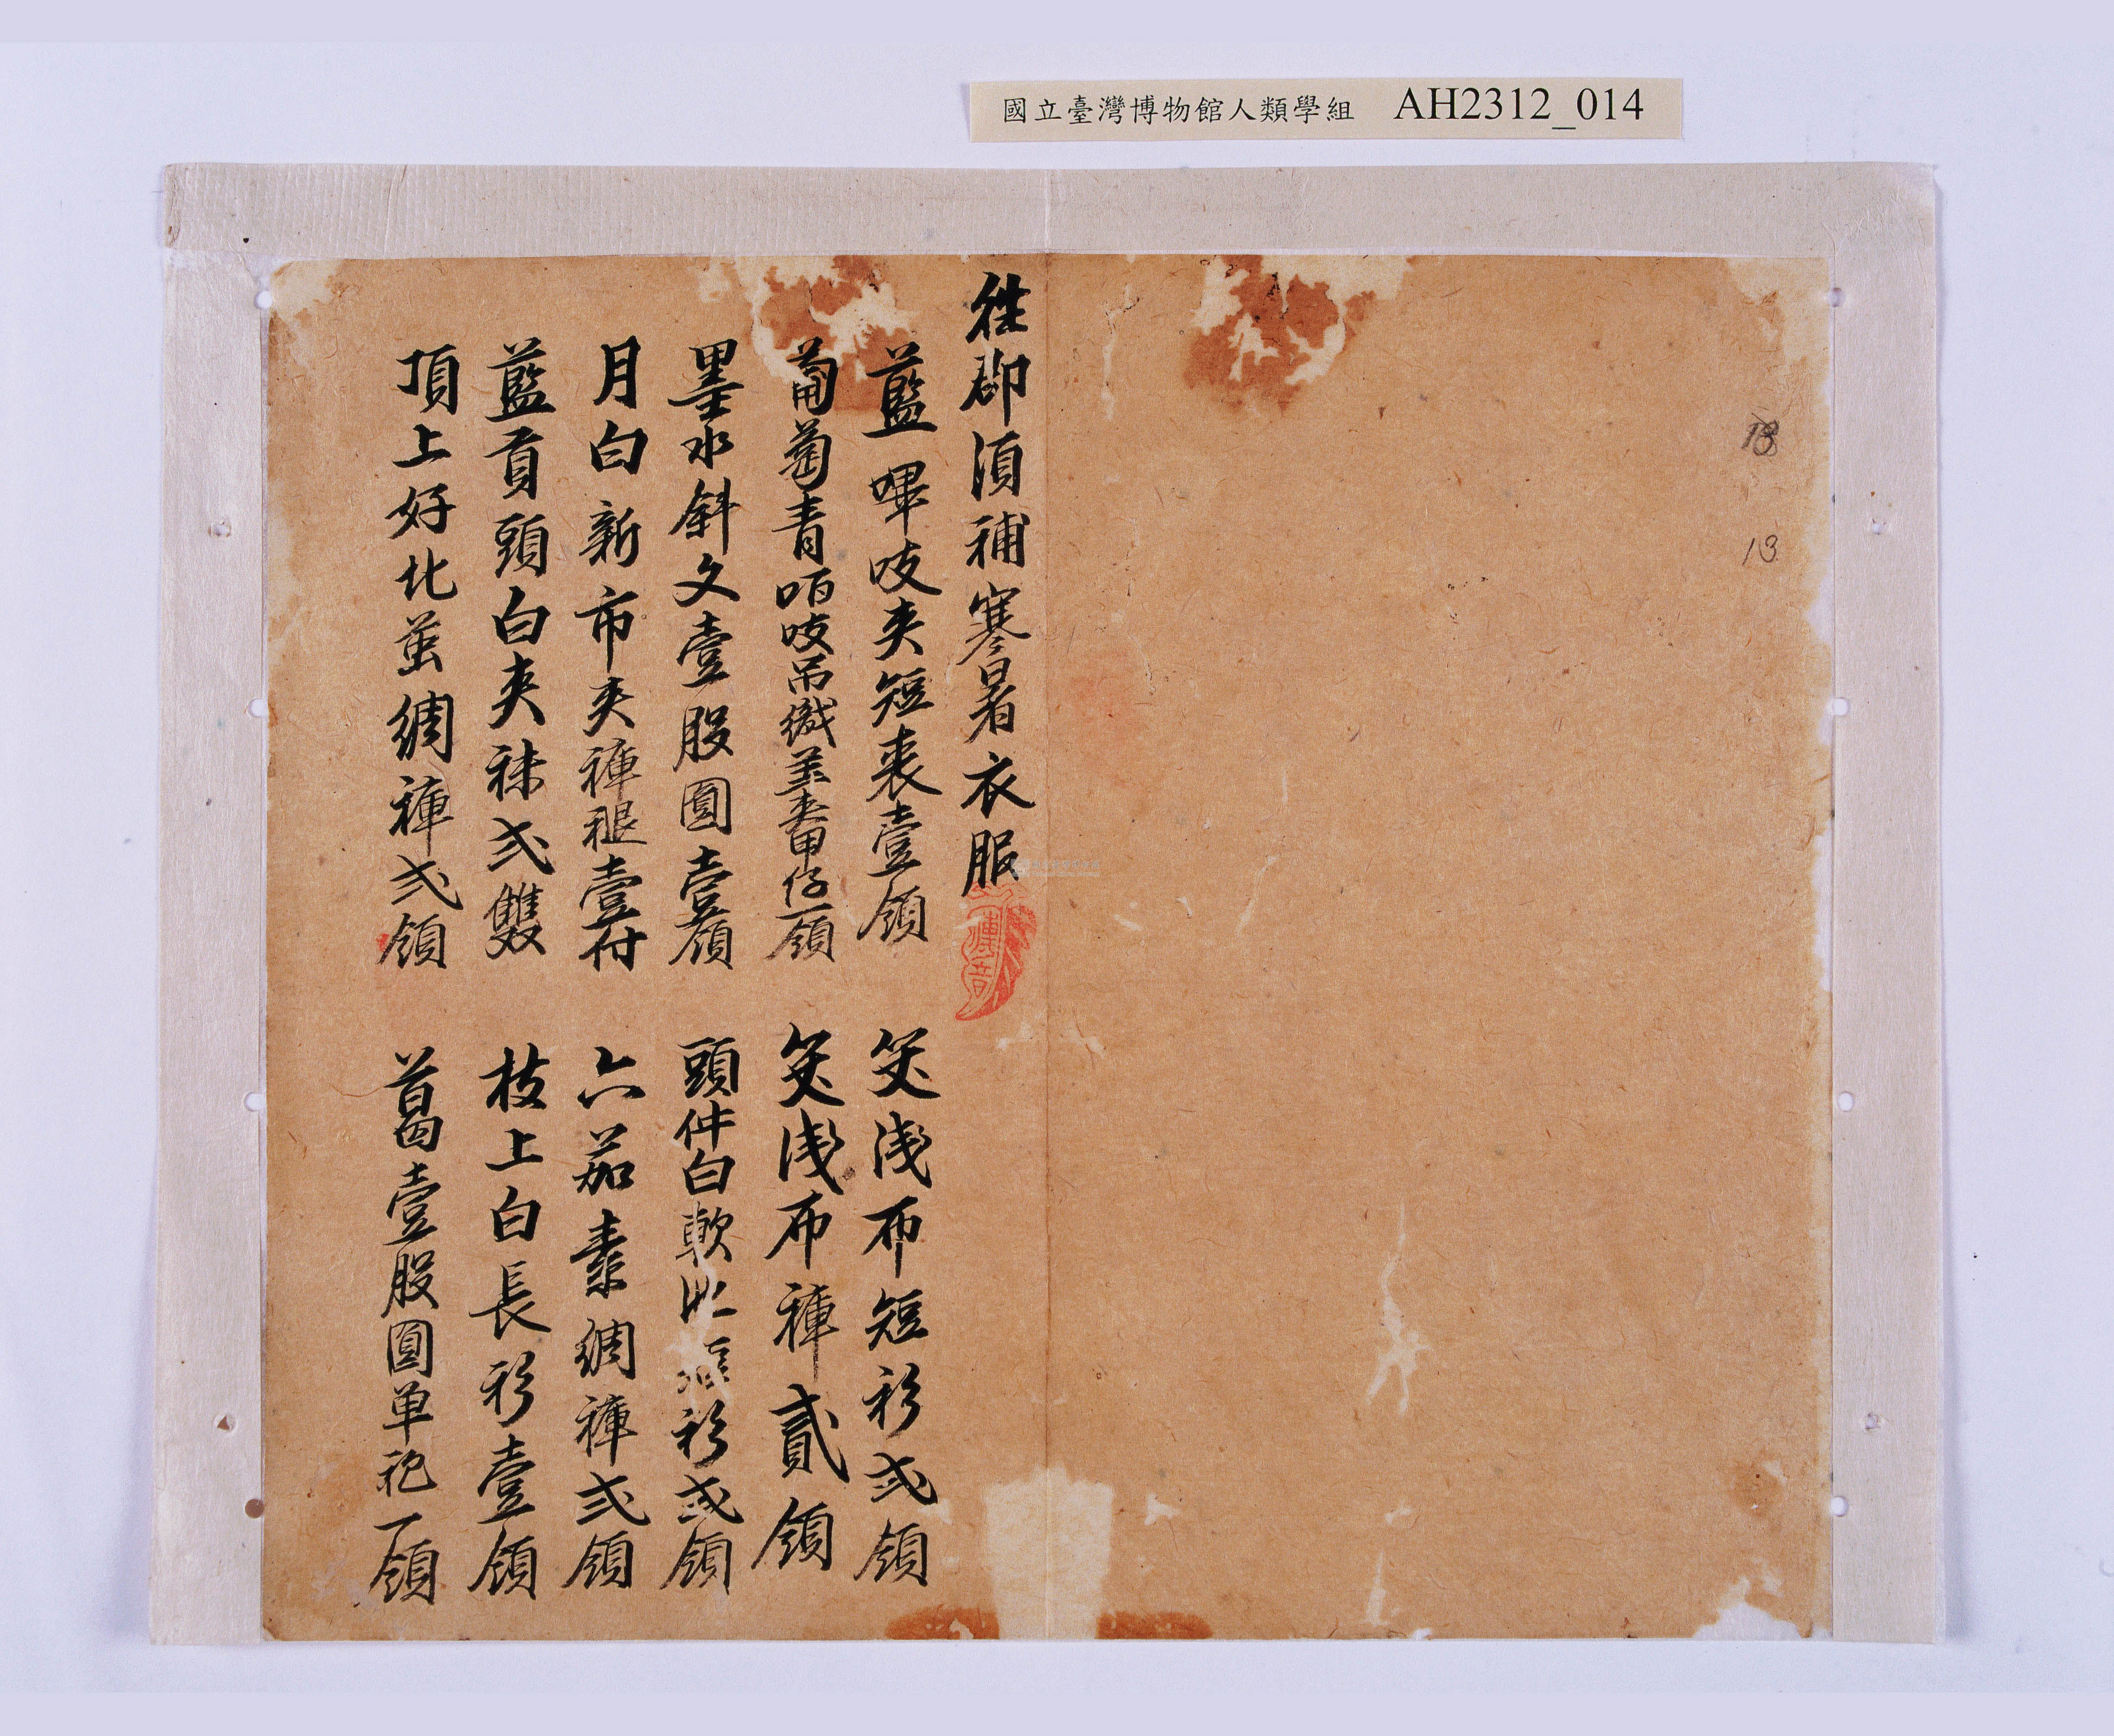 國立臺灣博物館人類學組 AH2312_014
18
13
往郡須補寒暑衣服
藍嗶吱夾短裘壹領
笅淺布短衫弍領
葡萄青咟吱吊織並番甲仔一領
笅淺布褲貳領
墨水斜文壹股圓壹領
頭件白軟 衫弍領
月白新市夾褲褪壹付
六茄素綢褲弍領
藍貢頭白夾袜弍雙
枝上白長衫壹領
頂上好北茧綢褲弍領
葛壹股圓单袍一領